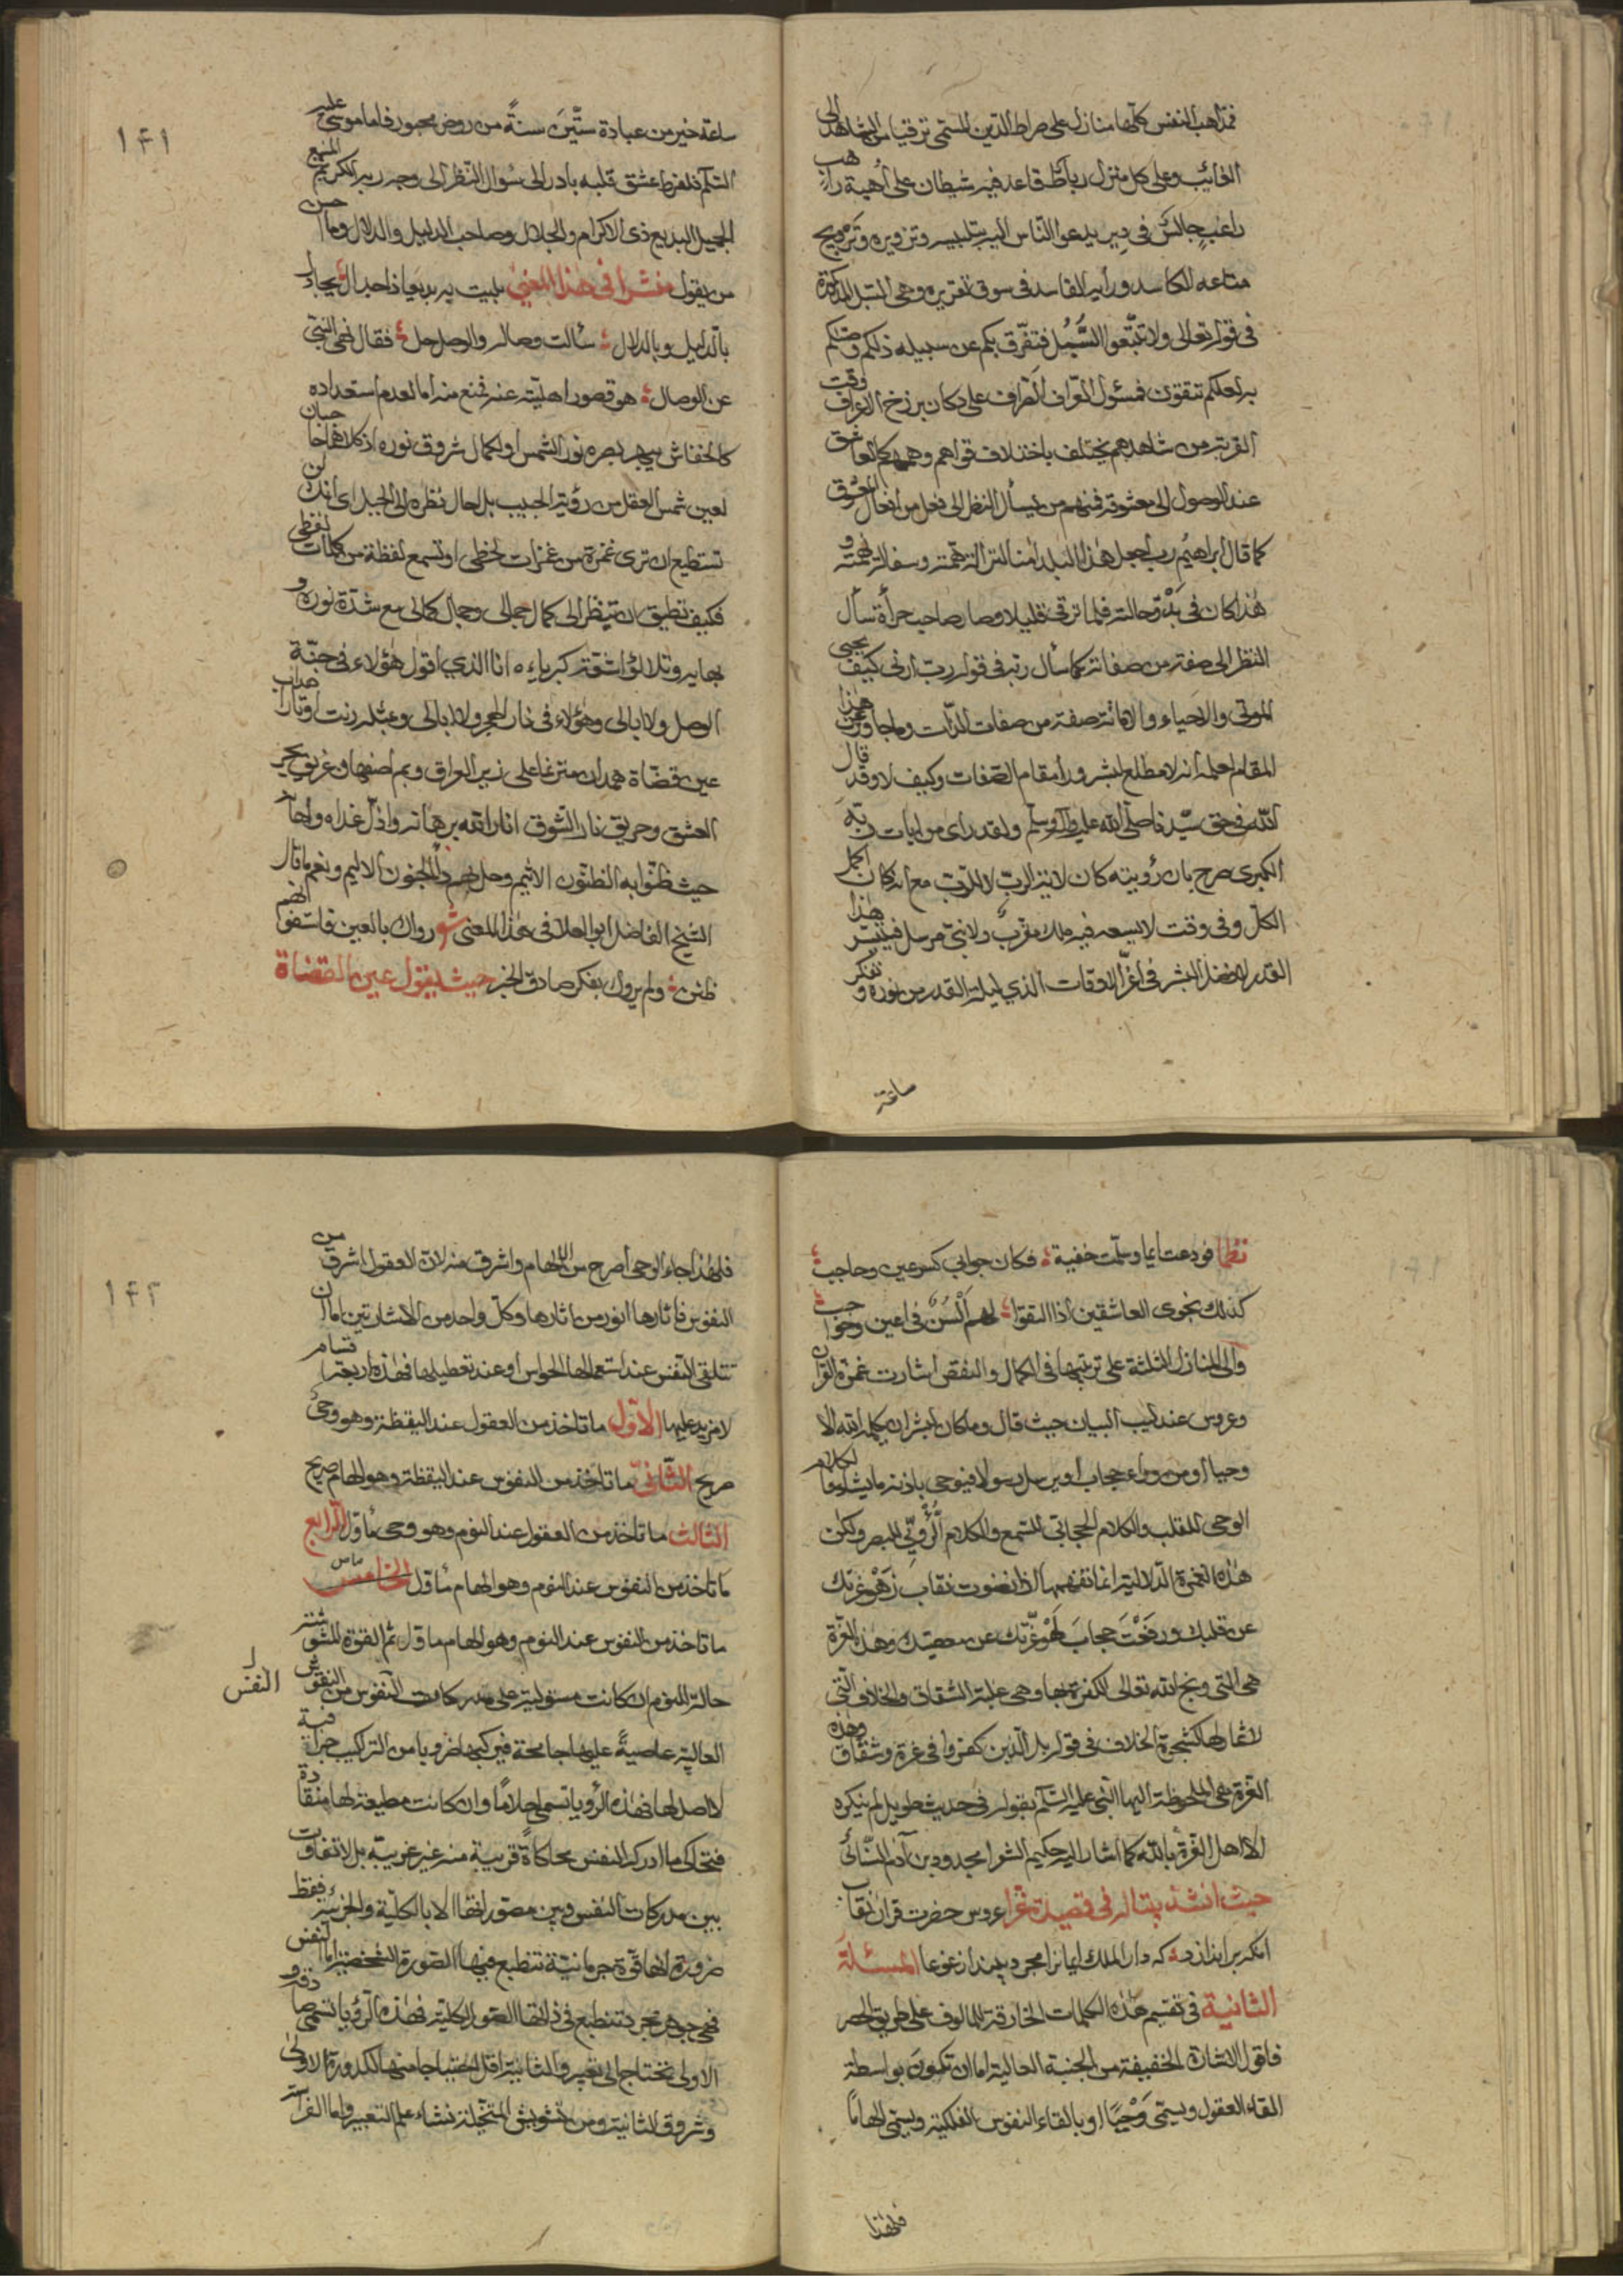 فمذاهب النفس كلها منازل على صراط الدين المستمى ترقيا من الشاهد الى
الغائب وعلى كل منزل رباط قاعد فيه شيطان على أهبة راهب
راغب جالس فى دير يدعو الناس اليه بتلبيسه وتزويره وترويج
متاعه الكاسد ورأيه الفاسد فى سوق تغريره وهى السبل المذكورة
فى قوله تعالى ولا تتبعوا السُّبُل فتفرق بكم عن سبيله ذلكم وصّٰكم
به لعلكم تتقون فمسؤل الطواف على دكان برزخ وقت
القربة من شاهدهم يختلف باختلاف قواهم وهممهم كالعاشق
عند الوصول الى معشوقه فمنهم من يسأل النظر الى فعل من افعال المعشوق
كما قال ابراهيم رب اجعل هذا البلد امنا لنزالة همته وسفالة نهمته و
هذا كان فى بدو حالته فلما ترقى قليلا وصار صاحب جرأة سأل
النظر الى صفة من صفاته كما سأل ربه فى قوله رب ارنى كيف يحيى
الموتى والاحياء والاماتة صفة من صفات الذات ولما جاوز عن هذا
المقام اعلم انه لا مطلع لبشر وراء مقام الصفات وكيف لا وقد قال
الله فى حق سيدنا صلى الله عليه وآله وسلم ولقد راى من ايات ربه
الكبرى صرح بان رؤيته كان لاية الرب لا للرب مع انه كان اكمل
الكل وفى وقت لا يسعه فيه ملك مقرب ولا نبى مرسل فيتيسر هذا
القدر لافضل البشر فى اغر الاوقات الذي ليلة القدر من نوره و تفكر
ساعة
١٤١
ساعة خير من عبادة ستين سنةً من روض محبور فاما موسى عليه
السلام فلفرط عشق قلبه بادر الى سؤال النظر الى وجه ربه الكريم المنيع
الجميل البديع ذى الاكرام والجلال وصاحب الدليل والدلال وما احسن
من يقول منشدا فى هذا المعنى
بالدليل وبالدلال سألت وصاله والوصل حل فقال نحى النبى
عن الوصال هو قصور اهليته عنه تمنع منه اما لعدم استعداده
كالخفاش يبهر بصره نور الشمس او لكمال شروق نوره اذ كلاهما حجابان
لعين شمس العقل من رؤية الحبيب بل احال نظره الى الجبل اى انك لن
تستطيع ان ترى غمزة من غمزات لحظى او تسمع لفظة من كلمات لفظى
فكيف تطيق ان تنظر الى كمال جمالى وجمال كمالى مع شدة نوره و
بهايه وتلالؤ اشعة كبرياءه انا الذي اقول هؤلاء فى جنة
الوصل ولا ابالى وهؤلاء فى نار الهجر ولا ابالى وبمثله رنت اوتار احداب
عين قضاة همدان مترنما على زير العراق وبم اصفهان غريق بحر
العشق وحريق نار الشوق انار الله برهانه واذل عداه واهانه
حيث ظنوا به الظنون الاثيم وحل بهم داء الجنون الاليم ونعم ما قال
الشيخ الفاضل ابو العلا فى هذا المعنى شعر رواك بالعين فاستغوا انهم
ظنن ولم يروك بفكر صادق الخبر حيث يقول عين القضاة
نظما فودعت ايما وسلمت خفية فكان جوابى كسر عين وحاجب
كذلك نجوى العاشقين اذا التقوا لهم السن فى اعين وحواجب
والى المنازل الثلثة على ترتيبها فى الكمال والنقص اشارت غمزة القرآن
وعروس عندليب البيان حيث قال وما كان لبشر ان يكلمه الله الا
وحيا او من وراء حجاب او يرسل رسولا فيوحى باذنه ما يشاء فالكلام
الوحى للقلب والكلام الحجابى للسمع والكلام الرؤيى للبصر ولكن
هذه الغمزة الدلالية انما تفهمها اذا نضوت نقاب زهو غرتك
عن قلبك ورفعت حجاب لهو غرتك عن بصيرتك وهذه الغرة
هى التى وبخ الله تعالى الكفرة بها وهى علة الشقاق والخلاف التى
لا ثمار لها كشجرة الخلاف فى قوله بل الذين كفروا فى غرة وشقاق وهذه
الغرة هى الملحوظة اليها النبى عليه السلام بقوله فى حديث طويل لم ينكره
الا اهل الغرة بالله كما اشار اليه حكيم الشعرا مجدود بن آدم السنائى
حيث انشد بتاله فى قصيدة غرا عروس حضرت قران نقاب
انكه بر اندازد كه دار الملك ايمانرا مجرد بيند از غوغا المسئلة
الثانية فى تقسيم هذه الكلمات الخارقة للمالوف على طريق الحصر
فاقول الاشارة الخفيفة من الجنبة العالية اما ان تكون بواسطة
القاء العقول ويسمى وَحْيًا او بالقاء النفوس الفلكية ويسمى الهامًا
فلهذا
١٤٢
فلهذا جاء الوحى اصرح من الالهام واشرق منه لان العقول اشرق من
النفوس فاثارها انور من اثارها وكل واحد من الاشارتين اما ان
تتلقى النفس عند استعمالها الحواس او عند تعطيلها فهذه اربعة اقسام
لا مزيد عليها الاول ما تاخذ من العقول عند اليقظة وهو وحى
صريح الثانى ما تاخذ من النفوس عند اليقظة وهو الهام صريح
الثالث ما تاخذ من العقول عند النوم وهو وحى مأول الرابع
ما تاخذ من النفوس عند النوم وهو الهام مأول الخامس
ما تاخذ من النفوس عند النوم وهو الهام مأول ثم القوة المشوشة
حالة النوم ان كانت مستولية على مدركات النفوس من النقوش
النفس
العالية عاصيةً عليها جامحة فيركبها ضروبا من التراكيب جزافية
لا اصل لها فهذه الرؤيا تسمى احلامًا وان كانت مطيعة لها منقادة
فتحاكى ما ادرك النفس محاكاةً قريبة منه غير غريبة بل لا تفاوت
بين مدركات النفس وبين مصوراتها الا بالكلية والجزئية فقط
ضرورة انها قوة جرمانية تنطبع فيها الصورة الشخصية اما النفس
فهى جوهر مجرد تنطبع فى ذاتها الصور الكلية فهذه الرؤيا تسمى صادقة و
الاولى تحتاج الى تعبير والثانية اقل احتياجا منها لكدورة الاولى
وشروق الثانية ومن تشويش المتخيلة نشاء علم التعبير واما الفراسة